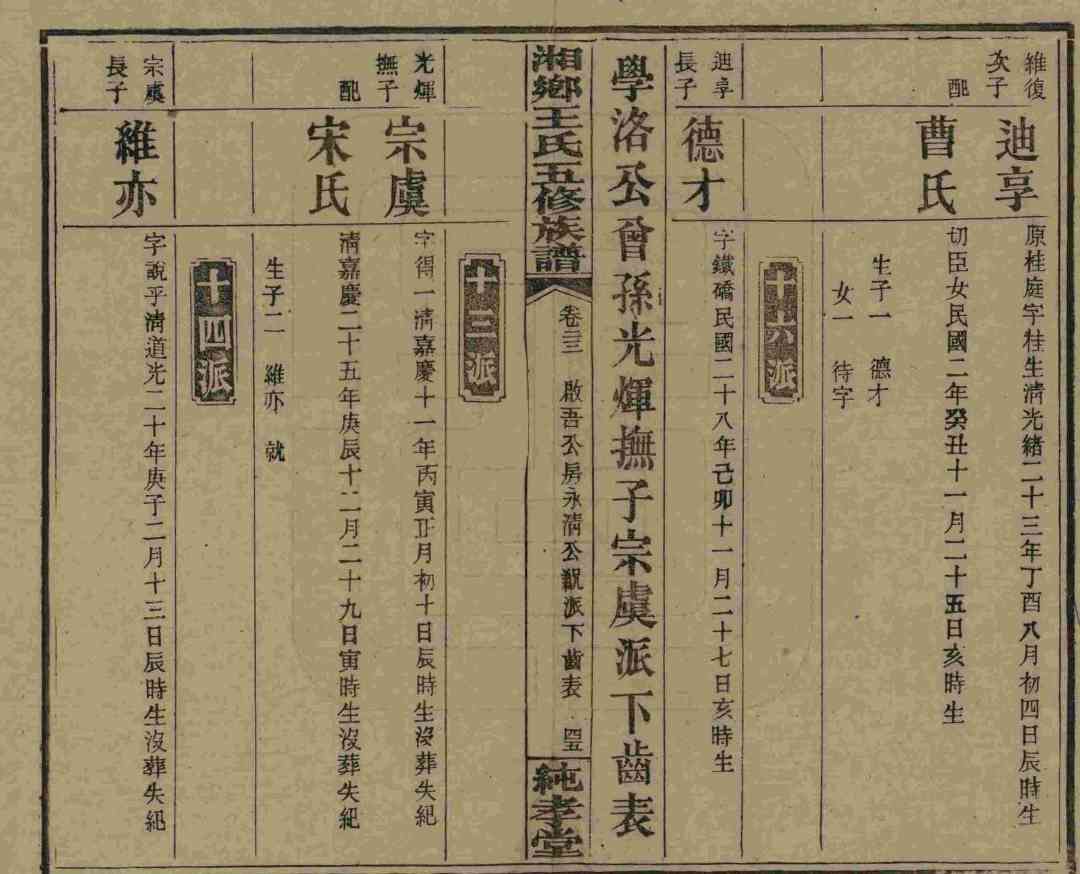 維復
次子
迪享
原桂庭字桂生清光緒二十三年丁酉八月初四日辰時生
配
曹氏
切臣女民國二年癸丑十一月二十五日亥時生
生子一 德才
女一 待字
十六派
迪享
長子
德才
字鐵礄民國二十八年己卯十一月二十七日亥時生
學洛公曾孫光煇撫子宗虞派下齒表
湘鄉王氏五修族譜
卷三三 啟吾公房永清公祝派下齒表 四五
純孝堂
十三派
光煇
撫子
宗虞
字得一清嘉慶十一年丙寅正月初十日辰時生沒葬失紀
配
宋氏
清嘉慶二十五年庚辰十二月二十九日寅時生沒葬失紀
生子二 維亦 就
十四派
宗虞
長子
維亦
字說乎清道光二十年庚子二月十三日辰時生沒葬失紀